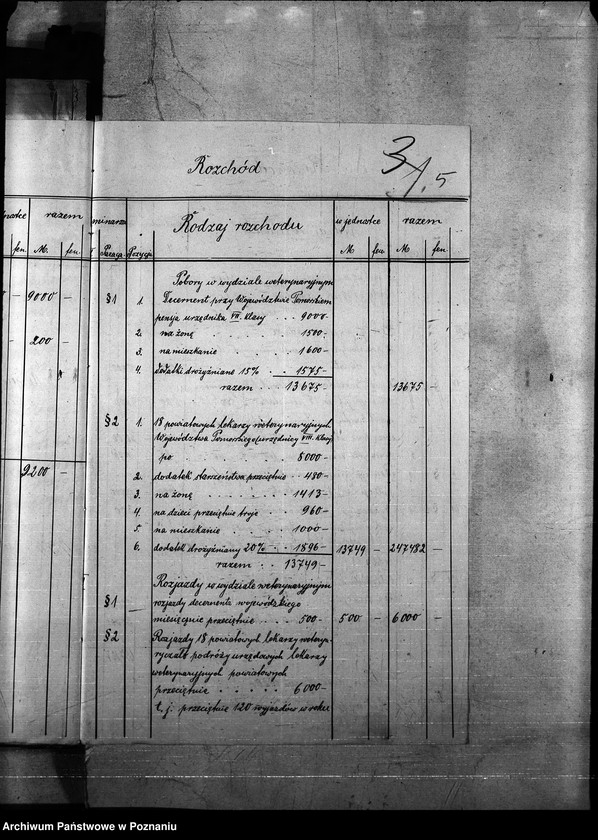 Rozchód
3/1.5
razem
M. fen.
9000 –
200 –
9200 –
Paragr. Pozycja Rodzaj rozchodu w jednostce razem
M fen. M fen.
Pobory w wydziale weterynaryjnym
§1 1. Decernent przy Województwie Pomorskiem
pensja urzędnika VII. Klasy . . 9000-
2. na żonę . . . . . 1500-
3. na mieszkanie . . . . 1600-
4. dodatki drożyźniane 15% . . 1575-
razem . . 13675- 13675 –
§2 1. 18 powiatowych lekarzy weterynaryjnych
Województwa Pomorskiego (urzędnicy VIII. Klasy)
po . . . . . 8000-
2. dodatek starszeństwa przeciętnie . . 480-
3. na żonę . . . . . . 1413-
4. na dzieci przeciętnie troje . . 960-
5. na mieszkanie . . . . 1000-
6. dodatek drożyźniany 20% . . 1896- 13749 – 247482 –
razem . . 13749-
Rozjazdy w wydziale weterynaryjnym
§1 rozjazdy decernenta wojewódzkiego
miesięcznie przeciętnie . . . . 500- 500 – 6000 –
§2 Rozjazdy 18 powiatowych lekarzy weteryn.
ryczałt podróży urzędowych lekarzy
weterynaryjnych powiatowych
przeciętnie . . . . . 6000-
t. j. przeciętnie 120 wyjazdów w roku
Archiwum Państwowe w Poznaniu